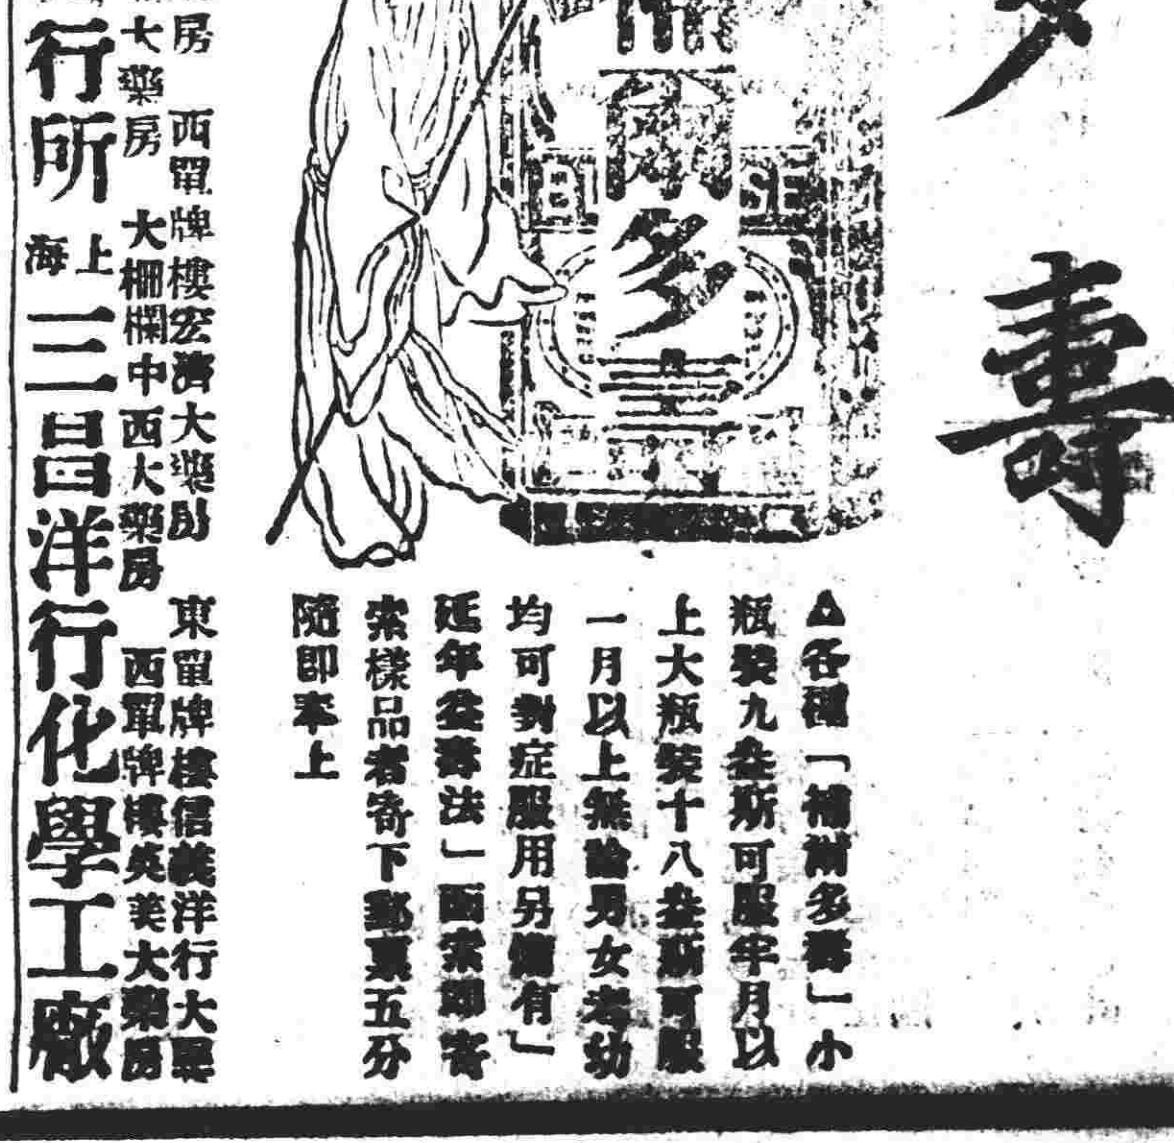 多壽
爾多壽
BI SE
△各種「補爾多壽」小
瓶裝九盎斯可服半月以
上大瓶裝十八盎斯可服
一月以上無論男女老幼
均可對症服用另備有「
延年益壽法」函索即寄
索樣品者寄下郵票五分
隨即奉上
房 西單牌樓宏濟大藥房 東單牌樓信義洋行大藥
大藥房 大柵欄中西大藥房 西單牌樓英美大藥房
行所 上海三昌洋行化學工廠